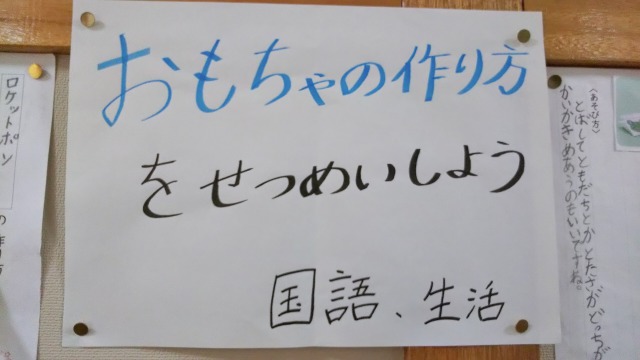 おもちゃの作り方
をせつめいしよう
国語、生活
ロケットポン
の作り方
〈あそび方〉
とばしてともだちとかとたさがどっちが
かいかきめあうのもいいですね。